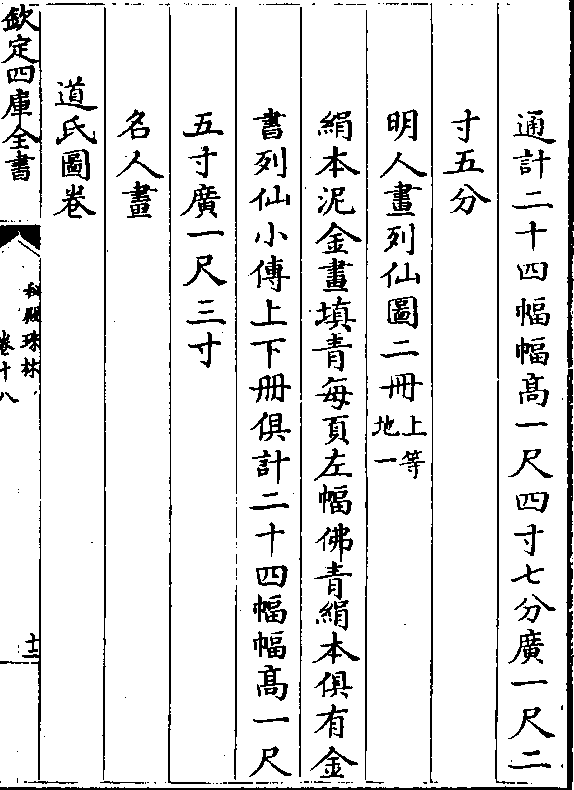 通計二十四幅幅髙一尺四寸七分廣一尺二
寸五分
明人畫列仙圖二冊上等
地一
絹本泥金畫填青每頁左幅佛青絹本俱有金
書列仙小傳上下册俱計二十四幅幅髙一尺
五寸廣一尺三寸
名人畫
道氏圖卷
欽定四庫全書
秘殿珠林
卷十八
十二